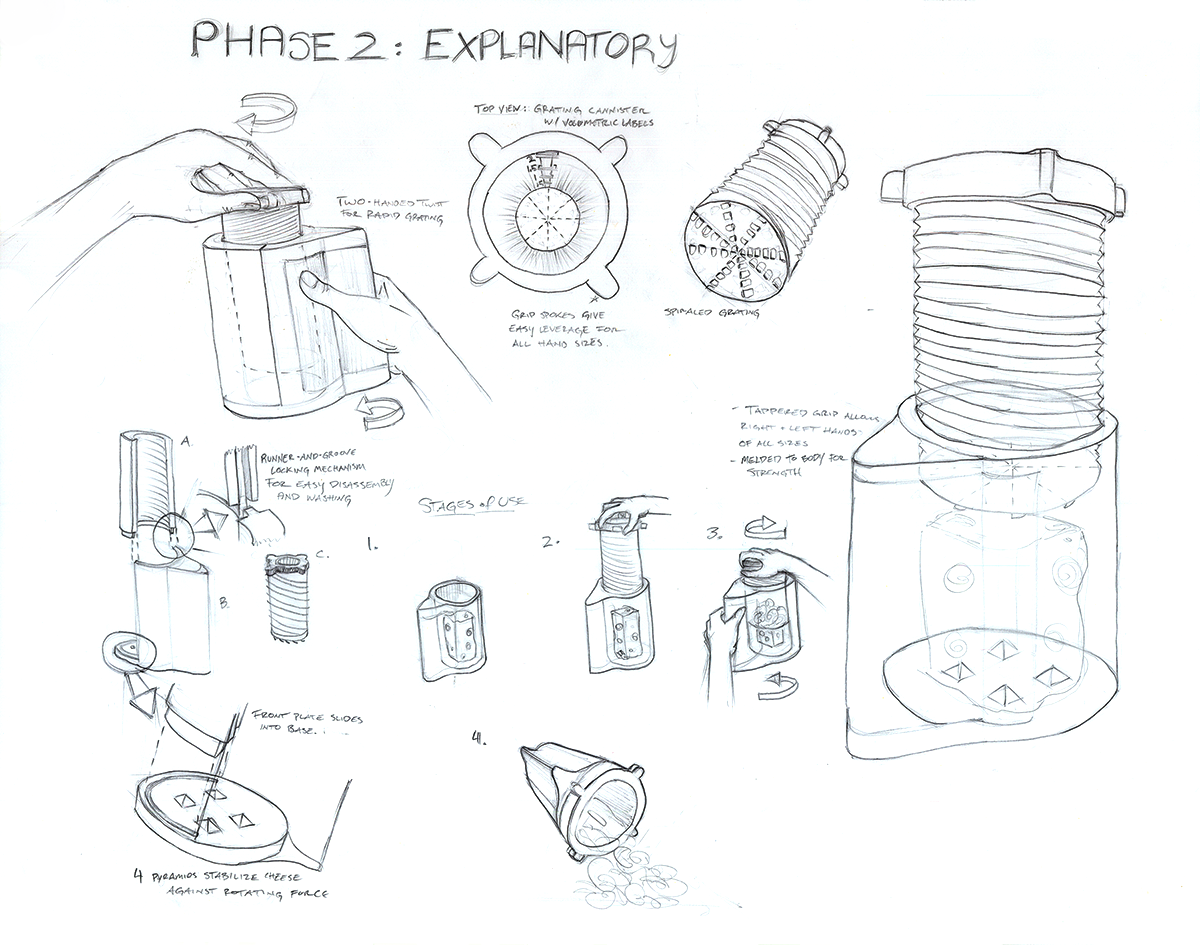 PHASE 2: EXPLANATORY
TWO-HANDED TWIST
FOR RAPID GRATING
TOP VIEW: GRATING CANNISTER
W/ VOLUMETRIC LABELS
2
1.5
1
GRIP SPOKES GIVE
EASY LEVERAGE FOR
ALL HAND SIZES.
SPIRALED GRATING
- TAPPERED GRIP ALLOWS
RIGHT + LEFT HANDS
OF ALL SIZES
- MELDED TO BODY FOR
STRENGTH
A.
RUNNER-AND-GROOVE
LOCKING MECHANISM
FOR EASY DISASSEMBLY
AND WASHING
B.
C.
STAGES of USE
1.
2.
3.
4.
FRONT PLATE SLIDES
INTO BASE...
4 PYRAMIDS STABILIZE CHEESE
AGAINST ROTATING FORCE